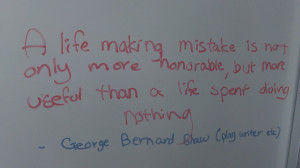 A life making mistake is not
only more honorable, but more
useful than a life spent doing
nothing
- George Bernard Shaw (play writer etc)